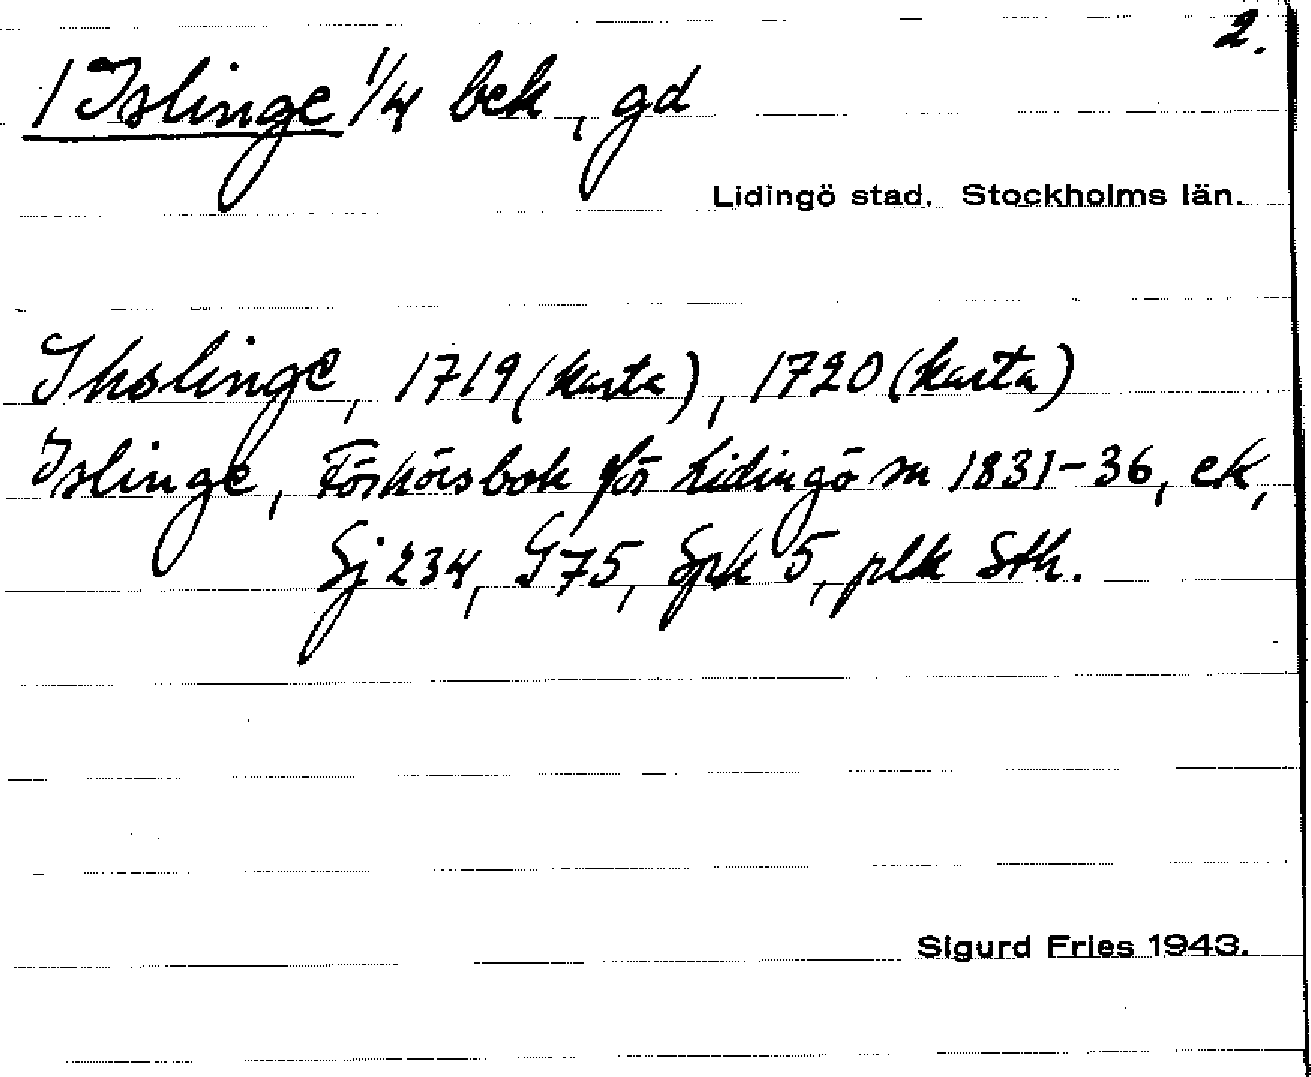 2.
/ Islinge 1/4 bek, gd
Lidingö stad. Stockholms län.
Ihslinge, 1719 (karta), 1720 (karta)
Islinge, Förhörsbok för Lidingö sn 1831-36, ek,
Sj 234, G 75, Spk 5, plk Sth.
Sigurd Fries 1943.